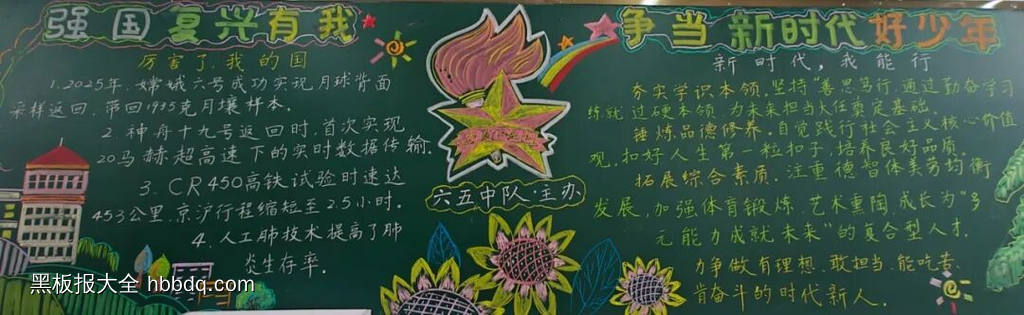 强国复兴有我
厉害了,我的国
1.2025年,嫦娥六号成功实现月球背面
采样返回,带回1935克月壤样本。
2.神舟十九号返回时,首次实现
20马赫超高速下的实时数据传输.
3.CR450高铁试验时速达
453公里,京沪行程缩短至2.5小时.
4.人工肺技术提高了肺
炎生存率.
六五中队·主办
争当新时代好少年
新时代,我能行
夯实学识本领.坚持"善思笃行,通过勤奋学习
练就过硬本领,为未来担当大任奠定基础.
锤炼品德修养.自觉践行社会主义核心价值
观,扣好人生第一粒扣子,培养良好品质.
拓展综合素质.注重德智体美劳均衡
发展,加强体育锻炼、艺术熏陶,成长为"多
元能力成就未来"的复合型人才.
力争做有理想、敢担当、能吃苦、
肯奋斗的时代新人.
黑板报大全 hbbdq.com